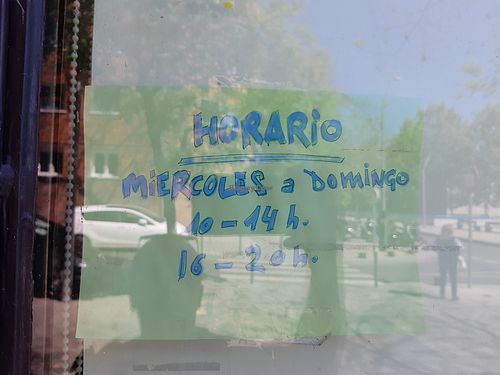 HORARiO
MiERCOLES a DOMiNGO
10 - 14 h.
16 - 20 h.